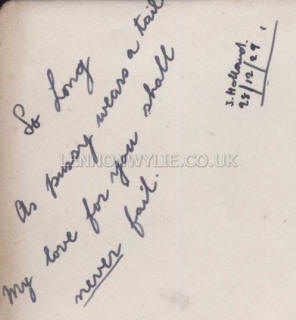 So Long
As pussy wears a tail
My love for you shall
never fail.
J. Holland.
28/12/29
LENNONWYLIE.CO.UK